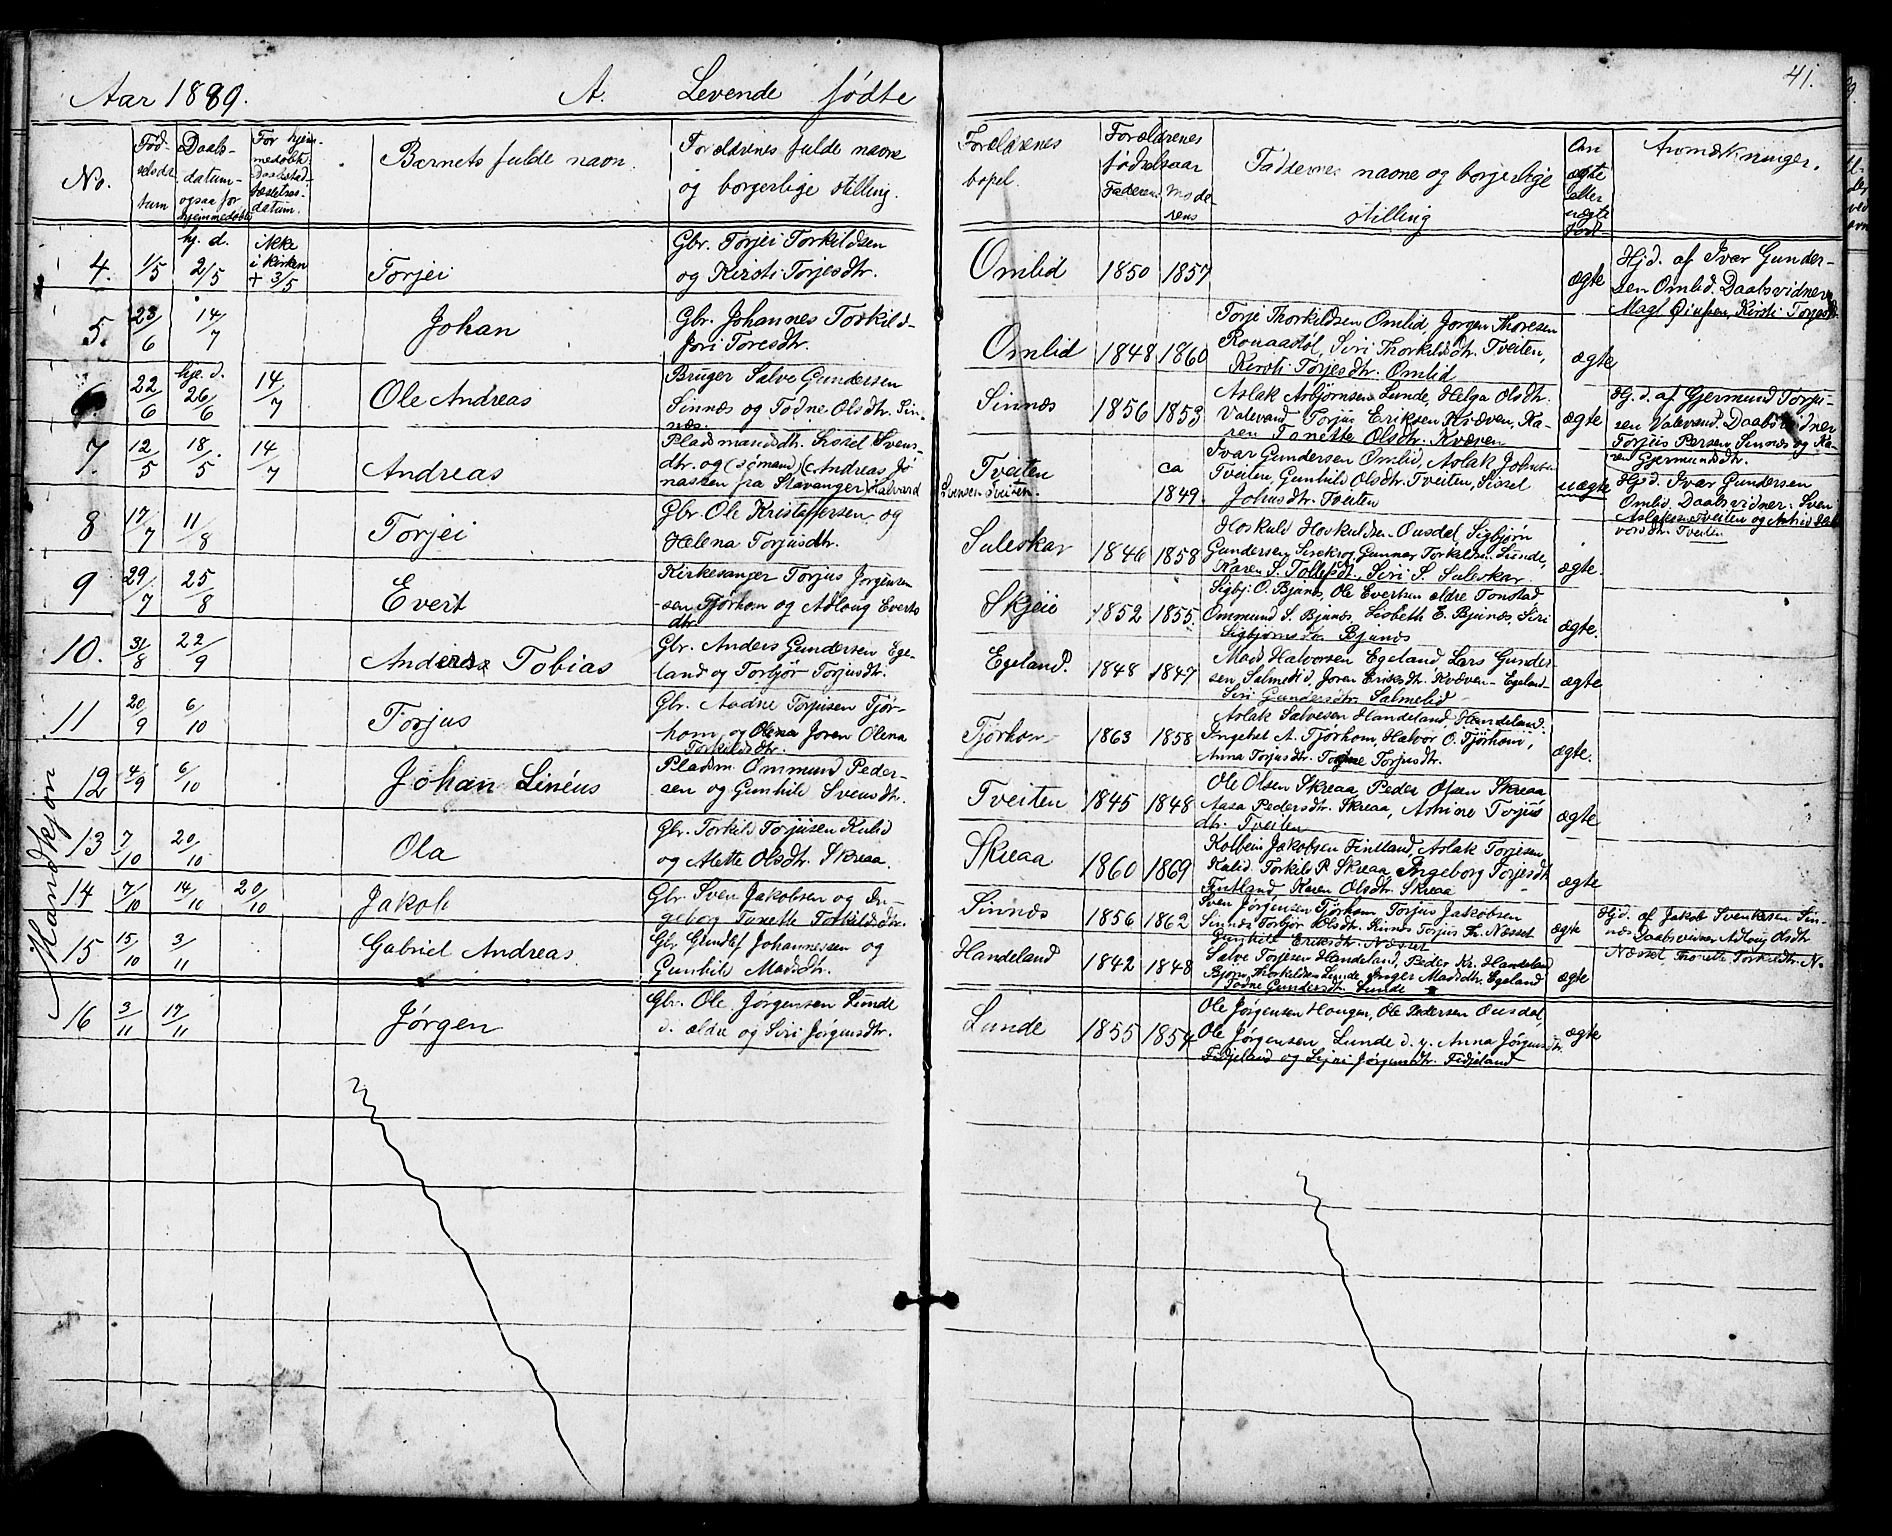 41.
Aar 1889. A. Levende fødte
No.
Fød-
selsda-
tum
Daabs-
datum-
ogsaa for
hjemmedøbte
For hjem-
medøbte
Daabstad-
fæstelses-
datum.
Barnets fulde navn.
Forældrenes fulde navne
og borgerlige stilling.
Forældrenes
bopel.
Forældrenes
fødselsaar
Faderens Mode-
rens
Faddernes navne og borgerlige
stilling
Om
ægte
eller
uægte
fød-
Anmærkninger.
4. 1/5 hj. d. 2/5 ikke i kirken + 3/5
Torjei
Gbr. Torjei Torkildsen
og Kirsti Torjesdtr.
Omlid 1850 1857
ægte
Hjd. af Ivar Gunder-
sen Omlid. Daabsvidner
Kirsti Torjesd
5. 23/6 14/7
Johan
Gbr. Johannes Torkild-
Jori Toresdtr.
Omlid 1848 1860
Torje Thorkildsen Omlid, Jørgen Thoresen
Siri Thorkildsdtr. Tveiten,
Kirsti Torjesdtr. Omlid
ægte
6. 22/6 hje. d. 26/6 14/7
Ole Andreas
Bruger Salve Gundersen
Sinnæs og Todne Olsdtr. Sin-
næs.
Sinnæs 1856 1853
Aslak Asbjørnsen Lunde, Helga Olsdtr.
Valevand, Torjus Eriksen Kvæven, Ka-
ren Tonette Olsdtr. Kvæven
ægte
Hj. d. af Gjermund Torju-
sen Valevand. Daabsvidner
Torjus Persen Sinnæs og Ka-
ren Gjermundsdtr.
7. 12/5 18/5 14/7
Andreas
Pladsmandsdtr. Sissel Svens-
dtr. og (sømand) Andreas Jo
nassen fra Stavanger) Halvard
Svensen Tveiten.
Tveiten ca 1849.
Ivar Gundersen Omlid, Aslak Johnsen
Tveiten, Gunhild Olsdtr. Tveiten, Sissel
Johnsdtr. Tveiten
uægte
Hjd. Ivar Gundersen
Omlid, Daabsvidner. Sven
Aslaksen Tveiten og
Tveiten
8 17/7 11/8
Torjei
Gbr. Ole Kristoffersen og
Helena Torjusdtr.
Suleskar 1846 1858
Hoskuld Hoskuldsen Ousdal, Sigbjørn
Gundersen Gunnar Torkildsen Lunde,
Karen S. Tollefsdtr., Siri S. Suleskar
ægte.
9 29/7 25/8
Evert
Kirkesanger Torjus Jørgensen
-sen Tjørhom og Adloug Everts
dtr.
Skjeie 1852 1855.
Sigbj. O. Bjunes, Ole Evertsen ældre Tonstad
Ommund S. Bjunes, Lisbeth E. Bjunes, Siri
Sigbjørnsdtr. Bjunes
ægte.
10. 31/8 22/9
Anders Tobias
Gbr. Anders Gundersen Ege-
land og Torbjør Torjusdtr.
Egeland. 1848 1847
Mads Halvorsen Egeland, Lars Gunder
sen Salmelid, Joren Eriksdtr. Kvæven - Egeland-
Siri Gundersdtr. Salmelid
ægte
11 20/9 6/10
Torjus
Gbr. Aadne Torjusen Tjør-
hom, og Olena Joren Olena
Torkildsdtr.
Tjørhom 1863 1858
Aslak Salvesen Handeland, Handeland.
Ingebet A. Tjørhom, Halvor O. Tjørhom,
Anna Torjusdtr. Todne Torjusdtr.
ægte.
12 4/9 6/10
Johan Linéus
Pladsm. Ommund Peder-
sen og Gunhild Svensdtr.
Tveiten 1845 1848
Ole Olsen Skreaa Peder Olsen Skreaa
Aasa Pedersdtr. Skreaa, Torjus
dtr. Tveiten
ægte
Haandkjøn
13 7/10 20/10
Ola
Gbr. Torkild Torjusen Kulid
og Alette Olsdtr. Skreaa.
Skreaa 1860 1869
Kolbein Jakobsen Fintland, Aslak Torjesen
Kulid. Torkild P Skreaa, Ingeborg Torjesdtr
Fintland Karen Olsdtr. Skreaa
ægte
14 7/10 14/10 20/10
Jakob
Gbr. Sven Jakobsen og In-
geborg Tonette Torkildsdtr.
Sinnæs 1856 1862
Sven Jørgensen Tjørhom, Torjus Jakobsen
Sinnæs Torbjør Olsdtr. Sinnes Torjus Th. Næsset
Gunhild Eriksdtr. Næsset
ægte
Hjd. af Jakob Svenksen Sin-
næs Daabsvidner Adloug Olsdtr
Næsset Tonette Torkildsdtr. N.
15 15/10 3/11
Gabriel Andreas.
Gbr Gundlef Johannessen og
Gunhild Madsdtr.
Handeland 1842 1848
Salve Torjesen Handeland, Peder Kr. Handeland
Bjørn Thorkildsen Lunde Inger Madsdtr. Egeland
Todne Gundersdtr. Lunde
ægte
16 3/11 17/11
Jørgen
Gbr. Ole Jørgensen Lunde
d. ældre og Siri Jørgensdtr.
Lunde 1855 1854
Ole Jørgensen Haugen, Ole Pedersen Ousdal,
Ole Jørgensen Lunde d. y. Anna Jørgensdtr.
Fidjeland og Siri Jørgensdtr. Fidjeland
ægte